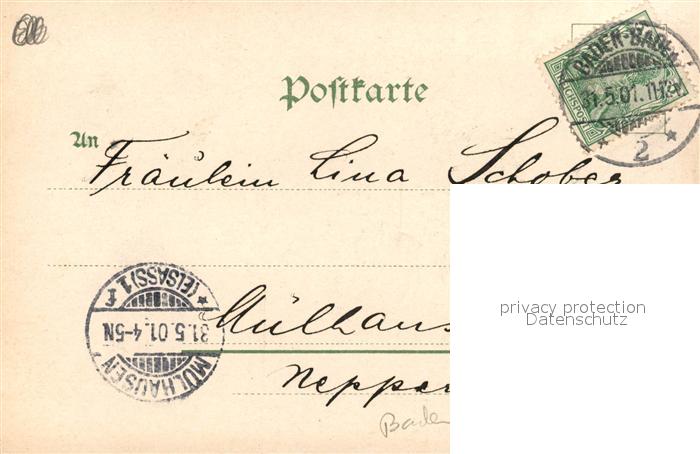 BADEN-BADEN
31.5.01.11-12V
* 2 *
REICHSPOST
Postkarte
An
Fräulein Lina Schober
Mülhaus
Nepper
MÜLHAUSEN
31.5.01.4-5N
(ELSASS) 1
* f
Baden
privacy protection
Datenschutz